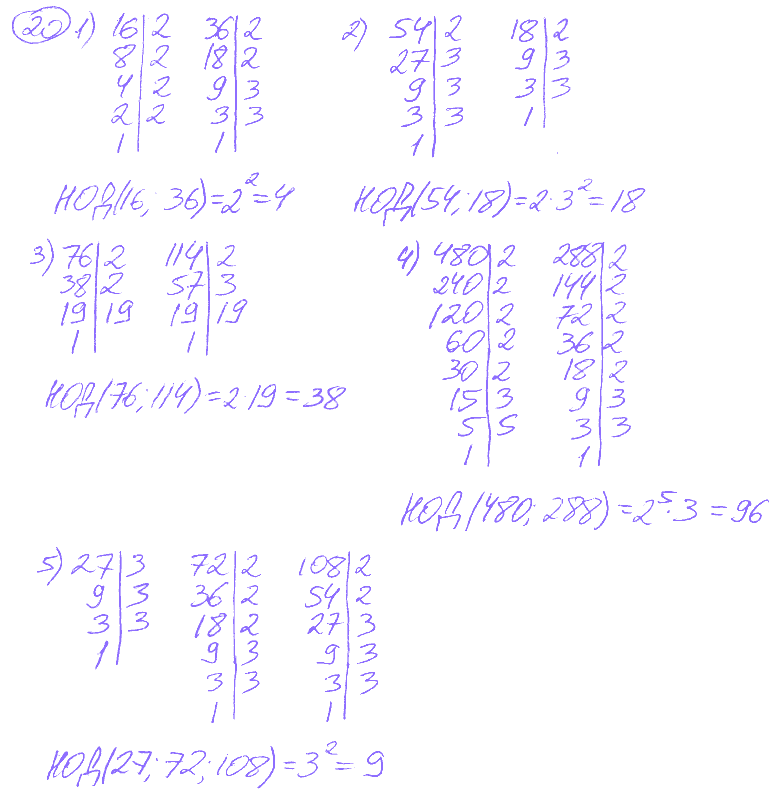 20 1) 16|2 36|2
8|2 18|2
4|2 9|3
2|2 3|3
1| 1|
НОД(16; 36)=2²=4
2) 54|2 18|2
27|3 9|3
9|3 3|3
3|3 1|
1|
НОД(54; 18)=2·3²=18
3) 76|2 114|2
38|2 57|3
19|19 19|19
1| 1|
НОД(76; 114)=2·19=38
4) 480|2 288|2
240|2 144|2
120|2 72|2
60|2 36|2
30|2 18|2
15|3 9|3
5|5 3|3
1| 1|
НОД(480; 288)=2⁵·3=96
5) 27|3 72|2 108|2
9|3 36|2 54|2
3|3 18|2 27|3
1| 9|3 9|3
3|3 3|3
1| 1|
НОД(27; 72; 108)=3²=9